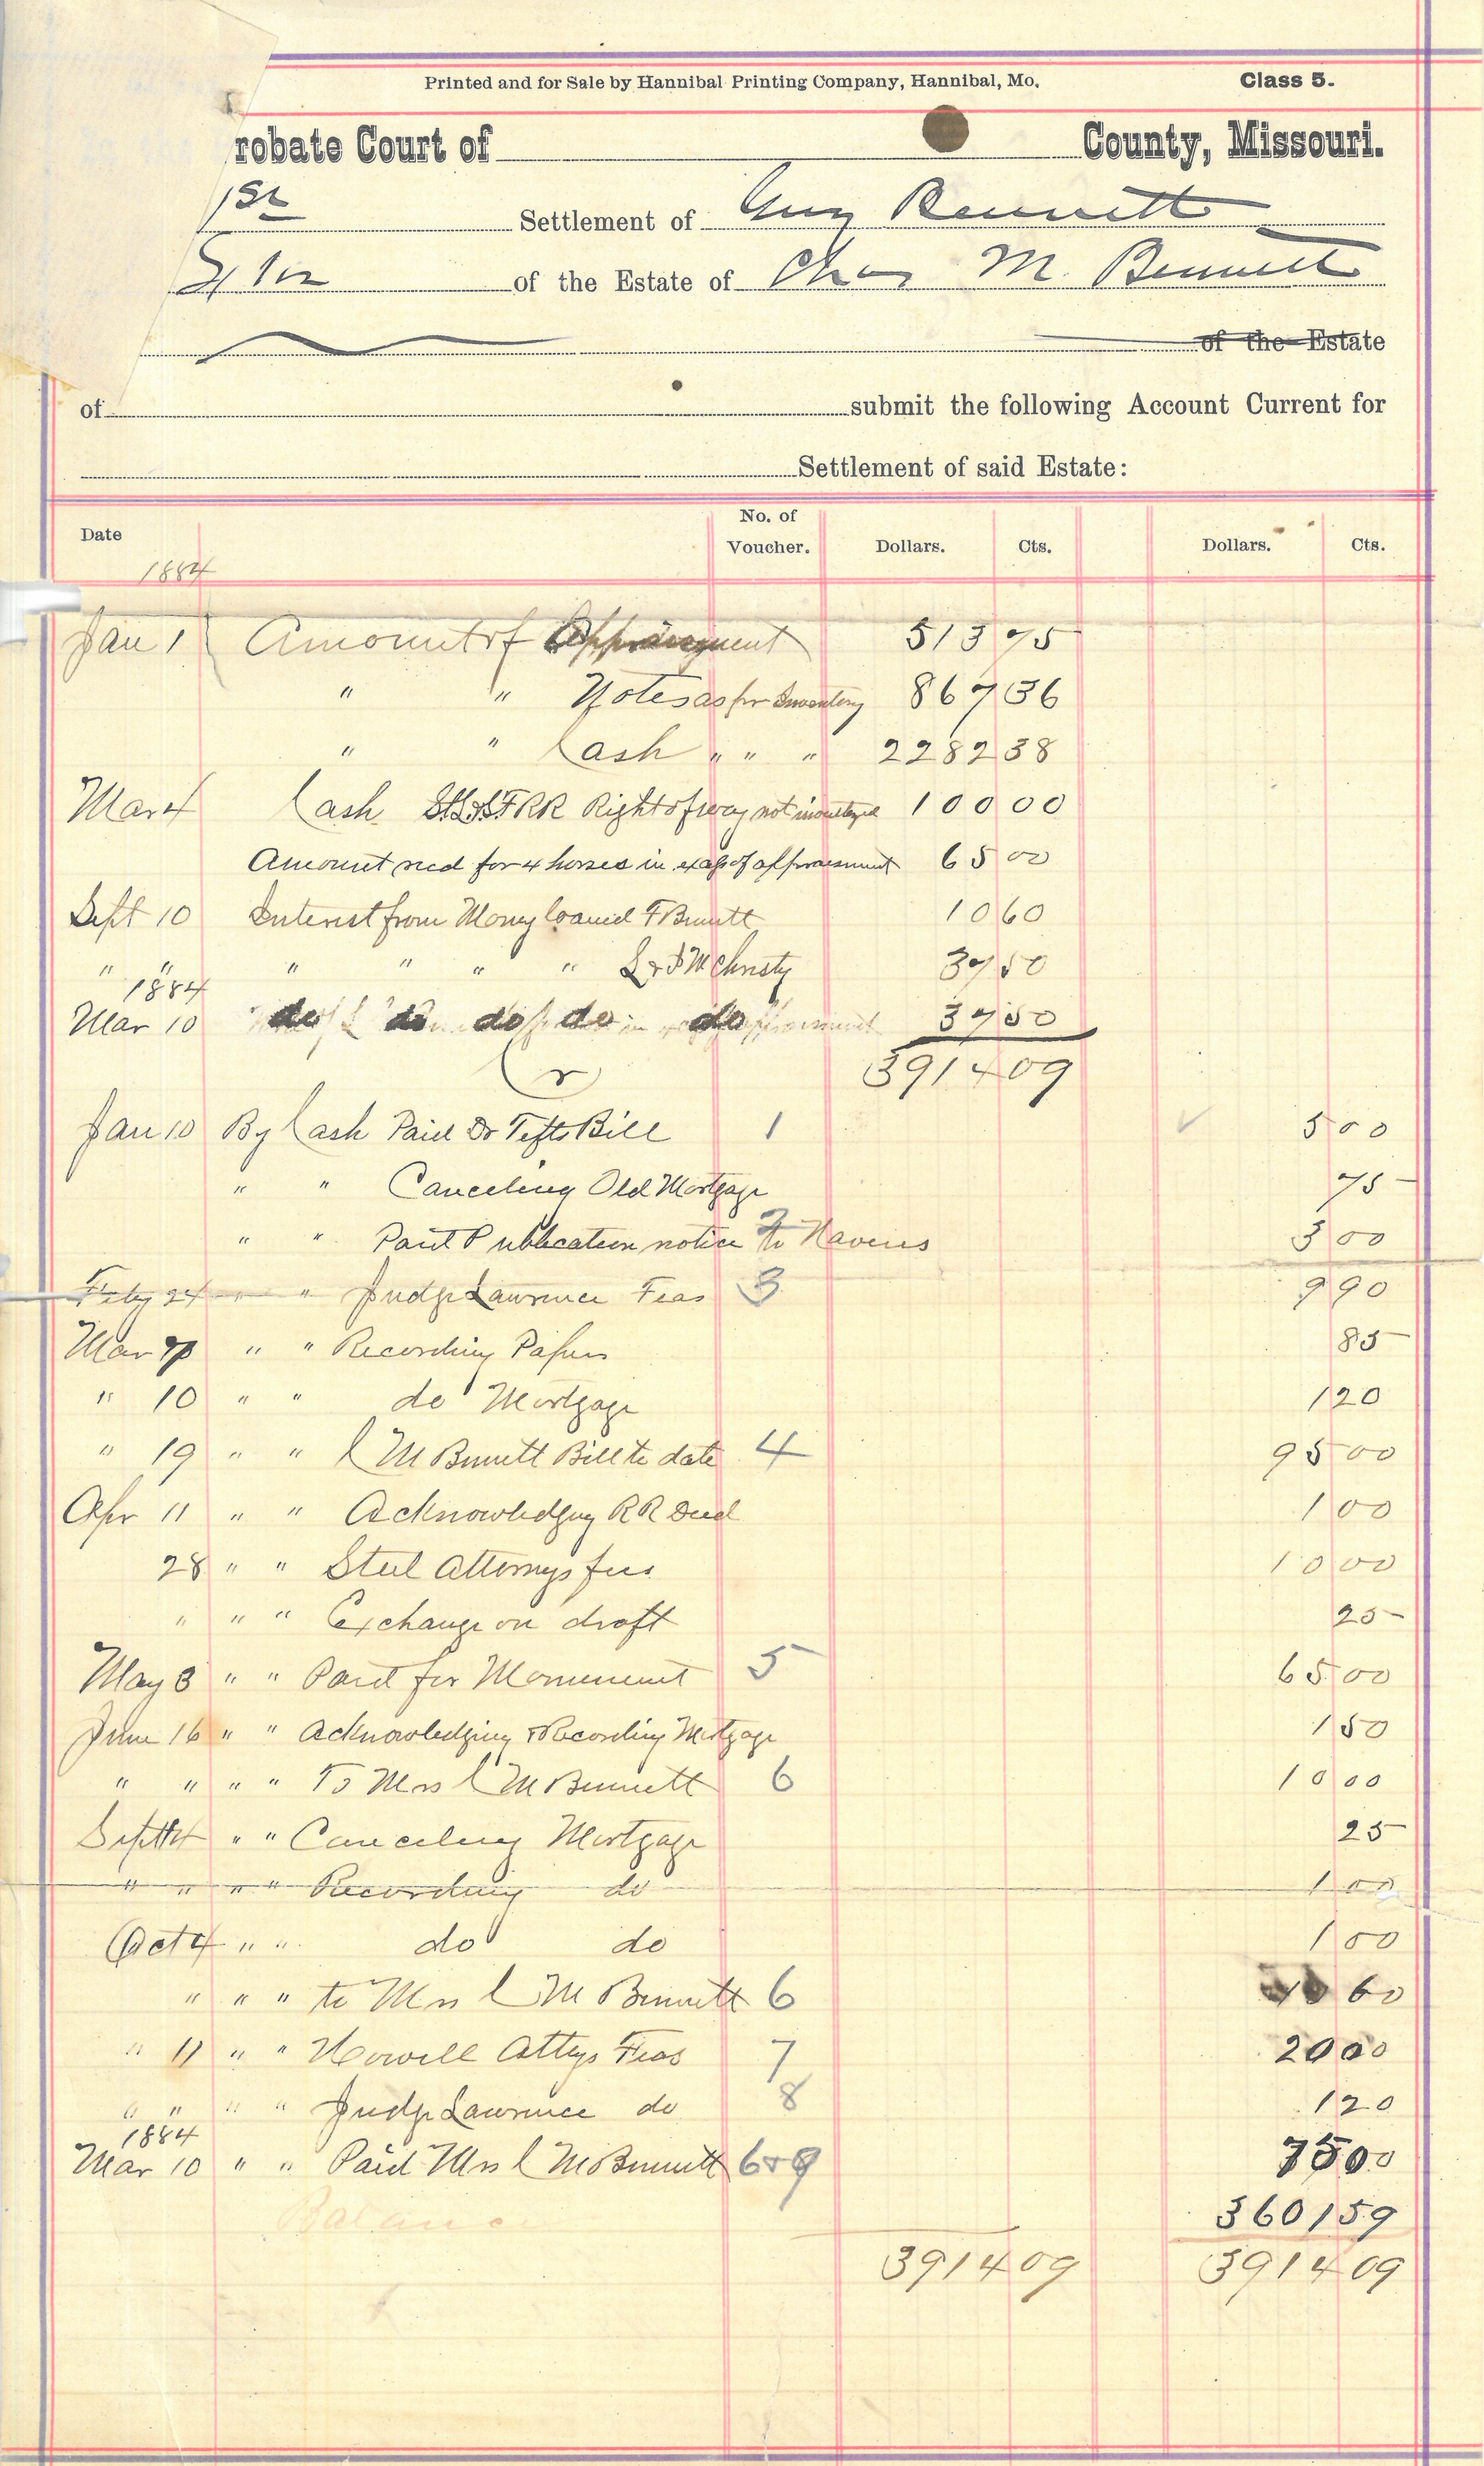 Printed and for Sale by Hannibal Printing Company, Hannibal, Mo. Class 5.
robate Court of County, Missouri.
1st Settlement of Guy Bennett
of the Estate of Chas M. Bennett
of the Estate
of submit the following Account Current for
Settlement of said Estate:
Date No. of Voucher. Dollars. Cts. Dollars. Cts.
1884
Jan 1 Amount of Appraisment 513 75
" " Notes as pr Inventory 867 36
" " Cash " " " 2282 38
Mar 4 Cash St.L.&S.F RR Right of way not inventoryed 100 00
Amount recd for 4 horses in of appraisment 65 00
Sept 10 Interest from Money loaned F Bennett 10 60
" " " " " " L & F McChristy 37 50
1884
Mar 10 do do do do do 37 50
Cr 3914 09
Jan 10 By Cash Paid Dr Tefts Bill 1 5 00
" " Canceling Old Mortgage 75
" " Paid Publication notice 2 to Havens 3 00
Feby 24 " " Judge Lawrence Feas 3 9 90
Mar " " Recording Papers 85
" 10 " " do Mortgage 1 20
" 19 " " C M Bennett Bill to date 4 95 00
Apr 11 " " Acknowledging RR Deed 1 00
28 " " Steel Attornys fees 10 00
" " " Exchange on draft 25
May 3 " " Paid for Monument 5 65 00
June 16 " " Acknowledging & Recording Mortgage 1 50
" " " " To Mrs C M Bennett 6 10 00
Sept 4 " " Canceling Mortgage 25
" " " " Recording do 1 00
Oct 4 " " do do 1 00
" " " to Mrs C M Bennett 6 10 60
" 11 " " Howell Attys Feas 7 20 00
" " " " Judge Lawrence do 8 1 20
1884
Mar 10 " " Paid Mrs C M Bennett 6 & 9 75 00
Balance 3601 59
3914 09 3914 09